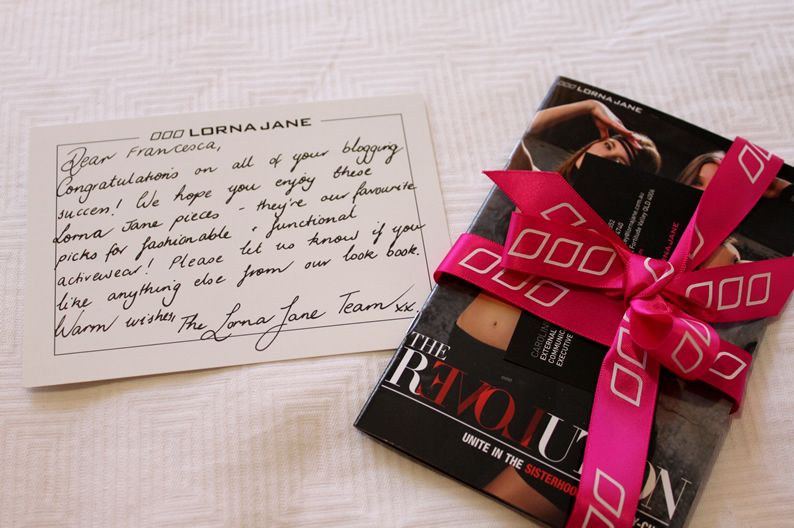 LORNA JANE
Dear Francesca,
Congratulations on all of your blogging
success! We hope you enjoy these
Lorna Jane pieces - they're our favourite
picks for fashionable + functional
activewear! Please let us know if you
like anything else from our look book.
Warm wishes, The Lorna Jane Team xx.
LORNA JANE
lornajane.com.au
Fortitude Valley QLD 4006
LORNAJANE
CAROLIN
EXTERNAL
COMMUNIC
EXECUTIVE
THE
REVOLUTION
UNITE IN THE SISTERHOO